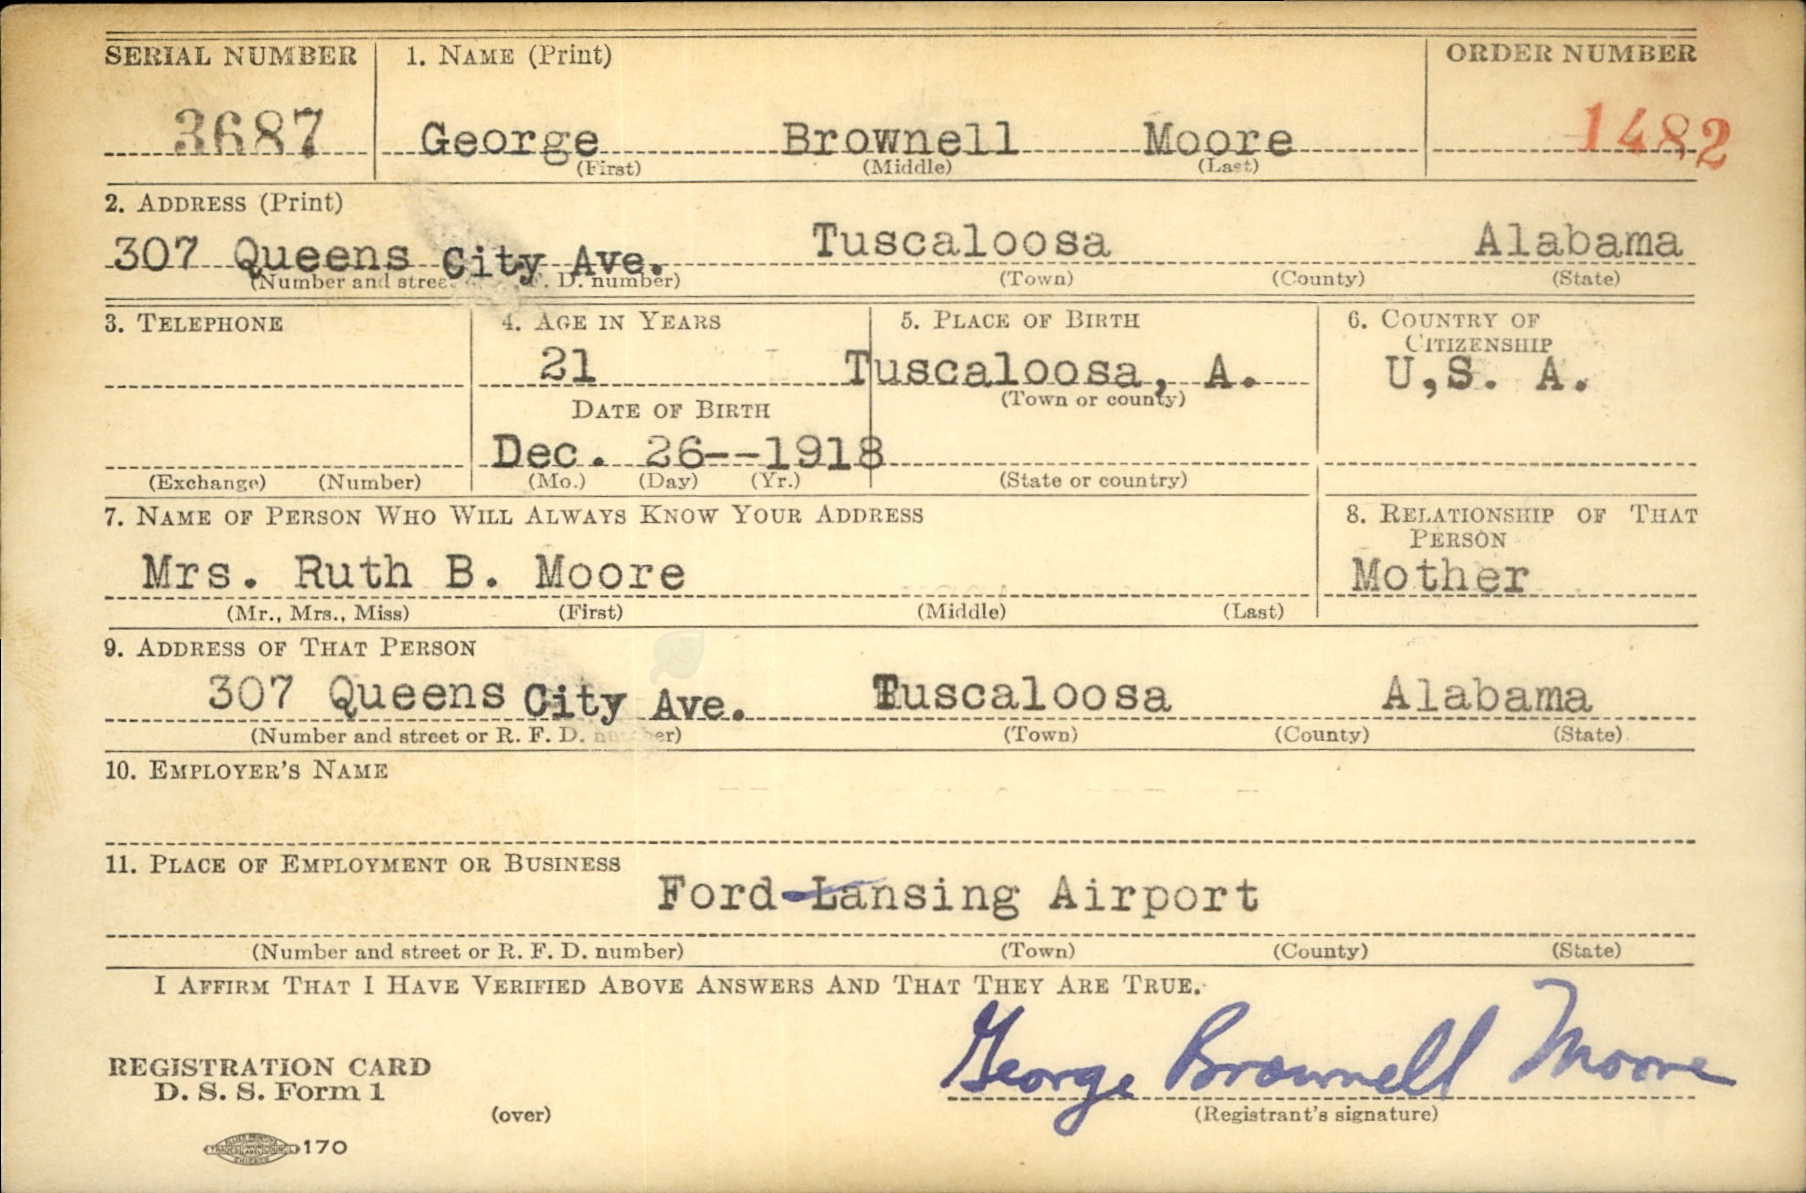 SERIAL NUMBER 1. NAME (Print) ORDER NUMBER
3687 George Brownell Moore 1482
(First) (Middle) (Last)
2. ADDRESS (Print)
307 Queens City Ave. Tuscaloosa Alabama
(Number and stree D. number) (Town) (County) (State)
3. TELEPHONE 4. AGE IN YEARS 5. PLACE OF BIRTH 6. COUNTRY OF
CITIZENSHIP
21 Tuscaloosa, A. U,S. A.
DATE OF BIRTH (Town or county)
Dec. 26--1918
(Exchange) (Number) (Mo.) (Day) (Yr.) (State or country)
7. NAME OF PERSON WHO WILL ALWAYS KNOW YOUR ADDRESS 8. RELATIONSHIP OF THAT
PERSON
Mrs. Ruth B. Moore Mother
(Mr., Mrs., Miss) (First) (Middle) (Last)
9. ADDRESS OF THAT PERSON
307 Queens City Ave. Tuscaloosa Alabama
(Number and street or R. F. D. number) (Town) (County) (State)
10. EMPLOYER'S NAME
11. PLACE OF EMPLOYMENT OR BUSINESS
Ford-Lansing Airport
(Number and street or R. F. D. number) (Town) (County) (State)
I AFFIRM THAT I HAVE VERIFIED ABOVE ANSWERS AND THAT THEY ARE TRUE.
George Brownell Moore
REGISTRATION CARD
D. S. S. Form 1
(over) (Registrant's signature)
170